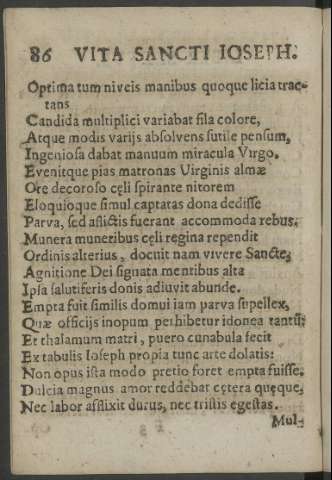 86 VITA SANCTI IOSEPH.
Optima tum niveis manibus quoque licia trac-
tans
Candida multiplici variabat fila colore,
Atque modis varijs absolvens sutile pensum,
Ingeniosa dabat manuum miracula Virgo.
Evenitque pias matronas Virginis almæ
Ore decoroso cęli spirante nitorem
Eloquioque simul captatas dona dedisse
Parva, sed afflictis fuerant accommoda rebus.
Munera muneribus cęli regina rependit
Ordinis alterius, docuit nam vivere Sancte,
Agnitione Dei signata mentibus alta
Ipsa salutiferis donis adiuvit abunde.
Empta fuit similis domui iam parva supellex,
Quæ officijs inopum perhibetur idonea tantũ;
Et thalamum matri, puero cunabula fecit
Ex tabulis Ioseph propia tunc arte dolatis:
Non opus ista modo pretio foret empta fuisse.
Dulcia magnus amor reddebat cętera quęque,
Nec labor afflixit durus, nec tristis egestas.
Mul-